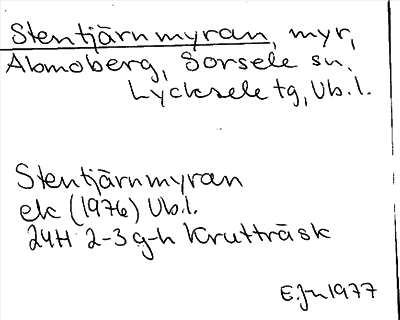 Stentjärnmyran, myr,
Abmoberg, Sorsele sn.
Lycksele tg, Vb.l.
Stentjärnmyran
ek (1976) Vb.l.
24H 2-3 g-h Krutträsk
E.Jn 1977